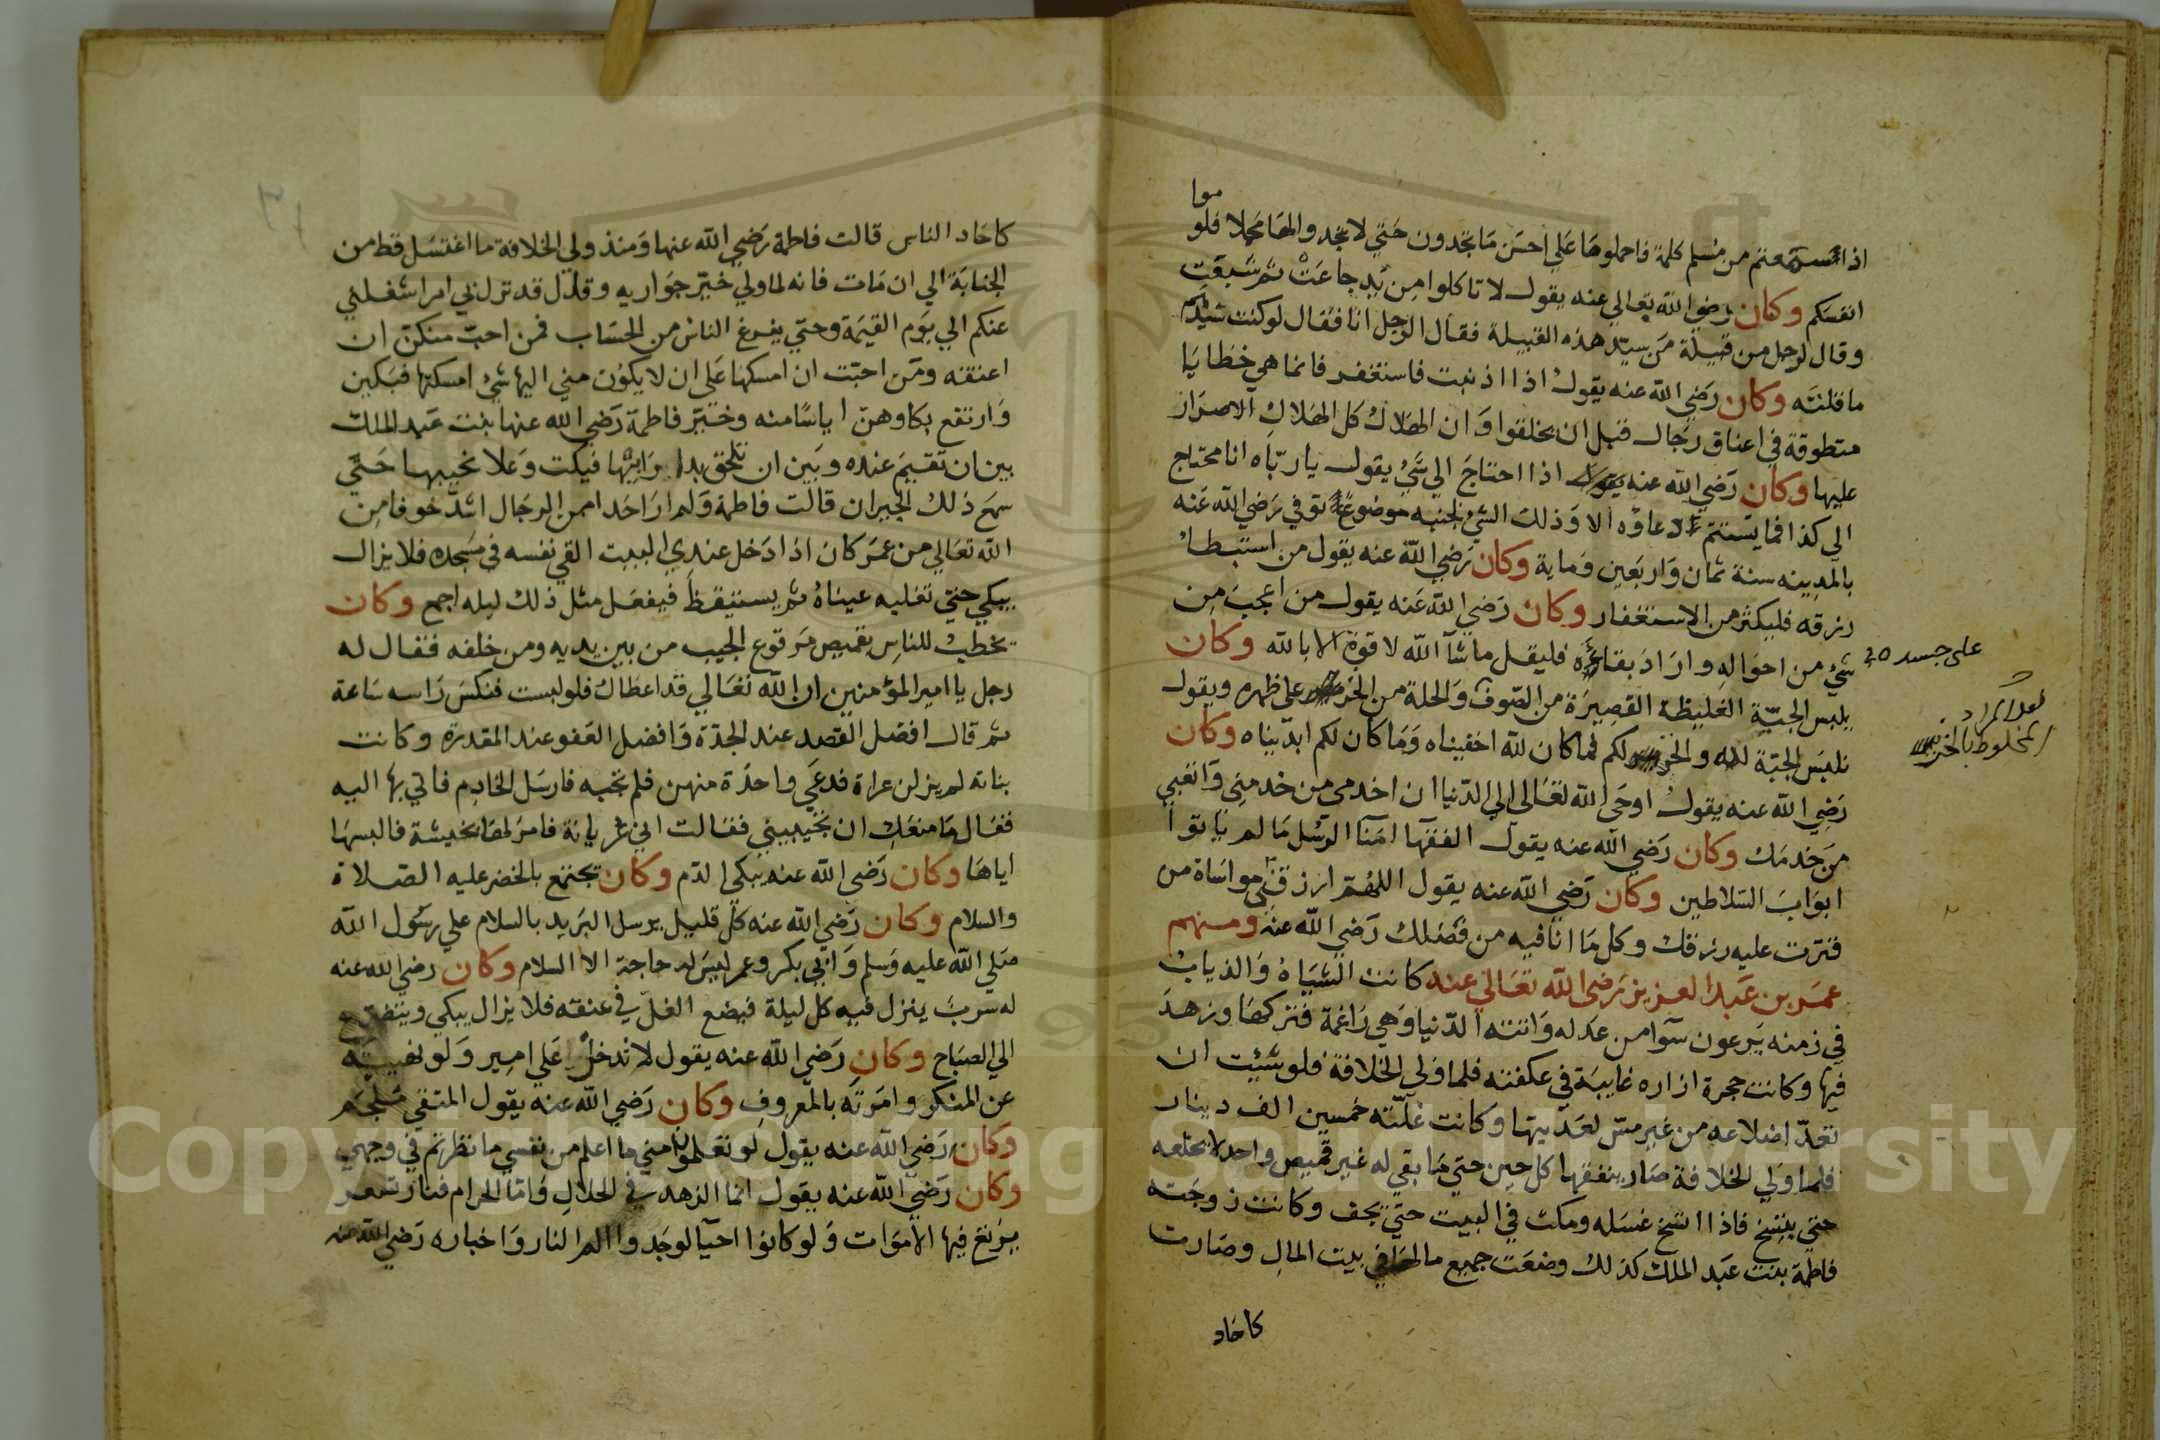 اذا سمعتم من مسلم كلمة فاحملوها على احسن ما تجدون حتي لا تجدوا لها محملا فلوموا
انفسكم وكان رضي الله تعالي عنه يقول لا تاكلوا من يد جاعت ثم شبعت
وقال لرجل من قبيلة من سيد هذه القبيلة فقال الرجل انا فقال لو كنت سيدهم
ما قلته وكان رضي الله عنه يقول اذا اذنبت فاستغفر فانما هي خطايا
متطوقة في اعناق رجال قبل ان يخلقوا وان الهلاك كل الهلاك الاصرار
عليها وكان رضي الله عنه اذا احتاج الي شي يقول يا رباه انا محتاج
الي كذا فما يستتم دعاؤه الا وذلك الشي بجنبه موضوعا توفي رضي الله عنه
بالمدينه سنة ثمان واربعين وماية وكان رضي الله عنه يقول من استبطا
رزقه فليكثر من الاستغفار وكان رضي الله عنه يقول من اعجب من
شي من احواله واراد بقاءه فليقل ما شآ الله لا قوة الا بالله وكان
يلبس الجبة الغليظة القصيرة من الصوف على جسده والحلة من الخز على ظهره ويقول
نلبس الجبة لله والخز لكم فما كان لله اخفيناه وما كان لكم ابديناه وكان
رضي الله عنه يقول اوحى الله تعالى الي الدنيا ان اخدمي من خدمني واتعبي
من خدمك وكان رضي الله عنه يقول الفقها امنآ الرسل ما لم ياتوا
ابواب السلاطين وكان رضي الله عنه يقول اللهم ارزقني مواساة من
قترت عليه رزقك وكل ما انا فيه من فضلك رضي الله عنه ومنهم
عمر بن عبد العزيز رضي الله تعالي عنه كانت الشياه والذياب
في زمنه يرعون سوآ من عدله واتته الدنيا وهي راغمة فتركها وزهد
فيها وكانت حجرة ازاره غايبة في عكفته فلما ولي الخلافة فلو شئت ان
تعد اضلاعه من غير مس لعديتها وكانت غلته خمسين الف دينار
فلما ولي الخلافة صار ينفقها كل حين حتي ما بقي له غير قميص واحد لا يخلعه
حتي يتسخ فاذا اتسخ غسله ومكث في البيت حتي يجف وكانت زوجته
فاطمة بنت عبد الملك كذلك وضعت جميع مالها في بيت المال وصارت
كاحاد
على جسده
المخلوط بالحرير
كاحاد الناس قالت فاطمة رضي الله عنها ومنذ ولي الخلافة ما اغتسل قط من
الجنابة الي ان مات فانه لما ولي خير جواريه وقال قد نزل بي امر اشغلني
عنكم الي يوم القيمة وحتي يفرغ الناس من الحساب فمن احب منكن ان
اعتقه ومن احبت ان امسكها علي ان لا يكون مني اليها شئ امسكتها فبكين
وارتفع بكاوهن اياسا منه وخير فاطمة رضي الله عنها بنت عبد الملك
بين ان تقيم عنده وبين ان تلحق بدار ابيها فبكت وعلا نحيبها حتي
سمع ذلك الجيران قالت فاطمة ولم ار احدا من الرجال اشد خوفا من
الله تعالي من عمر كان اذا دخل عندي البيت القي نفسه في مسجده فلا يزال
يبكي حتي تغلبه عيناه ثم يستيقظ فيفعل مثل ذلك ليله اجمع وكان
يخطب للناس بقميص مرقوع الجيب من بين يديه ومن خلفه فقال له
رجل يا امير المؤمنين ان الله تعالي قد اعطاك فلو لبست فنكس راسه ساعة
ثم قال افضل القصد عند الجدة وافضل العفو عند المقدرة وكانت
بناته لم يزلن عراة فدعي واحدة منهن فلم تجبه فارسل الخادم فاتي بها اليه
فقال ما منعك ان تجيبيني فقالت اني عريانة فامر لها بخيشة فالبسها
اياها وكان رضي الله عنه يبكي الدم وكان يجتمع بالخضر عليه الصلاة
والسلام وكان رضي الله عنه كل قليل يرسل البريد بالسلام علي رسول الله
صلي الله عليه وسلم وابي بكر وعمر ليس له حاجة الا السلام وكان رضي الله عنه
له سرب ينزل فيه كل ليلة فيضع الغل في عنقه فلا يزال يبكي ويتضرع
الي الصباح وكان رضي الله عنه يقول لا تدخل علي امير ولو نهيته
عن المنكر وامرته بالمعروف وكان رضي الله عنه يقول المتقي ملجم
وكان رضي الله عنه يقول لو تعلموا مني ما اعلم من نفسي ما نظرتم في وجهي
وكان رضي الله عنه يقول انما الزهد في الحلال واما الحرام فنار تسعر
يرتع فيها الاموات ولو كانوا احيآ لوجدوا الم النار واخباره رضي الله عنه
Copyright © King Saud University